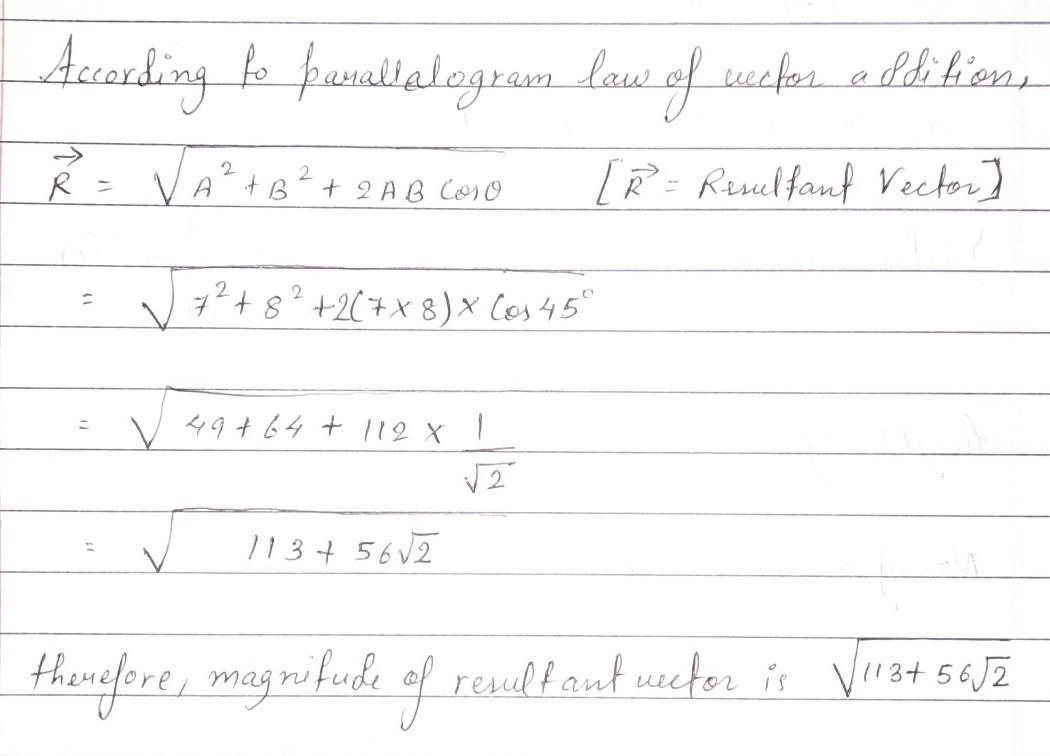 According to parallalogram law of vector addition,
R⃗ = √(A² + B² + 2AB Cosθ) [R⃗ = Resultant Vector]
= √(7² + 8² + 2(7 × 8) × Cos 45°)
= √(49 + 64 + 112 × 1/√2)
= √(113 + 56√2)
therefore, magnitude of resultant vector is √(113 + 56√2)